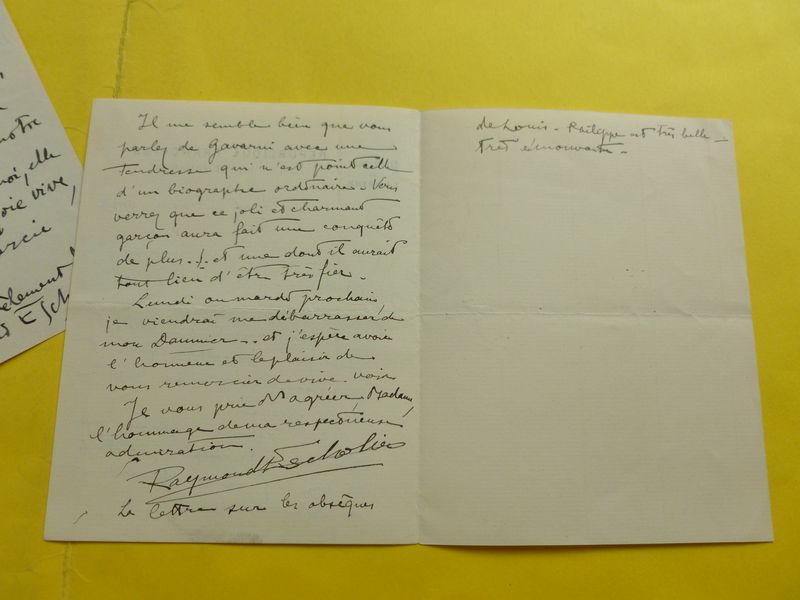 notre
moi, elle
joie vive,
Il me semble bien que vous
parlez de Gavarni avec une
tendresse qui n'est point celle
d'un biographe ordinaire. Vous
verrez que ce joli et charmant
garçon aura fait une conquête
de plus ... et une dont il aurait
tout lieu d'être très fier.
Lundi ou mardi prochain,
je viendrai me débarrasser de
mon Daumier ... et j'espère avoir
l'honneur et le plaisir de
vous remercier de vive voix
Je vous prie d'agréer, Madame,
l'hommage de ma respectueuse
admiration.
Raymond Escholier
La lettre sur les obsèques
de Louis-Philippe est très belle –
très émouvante –